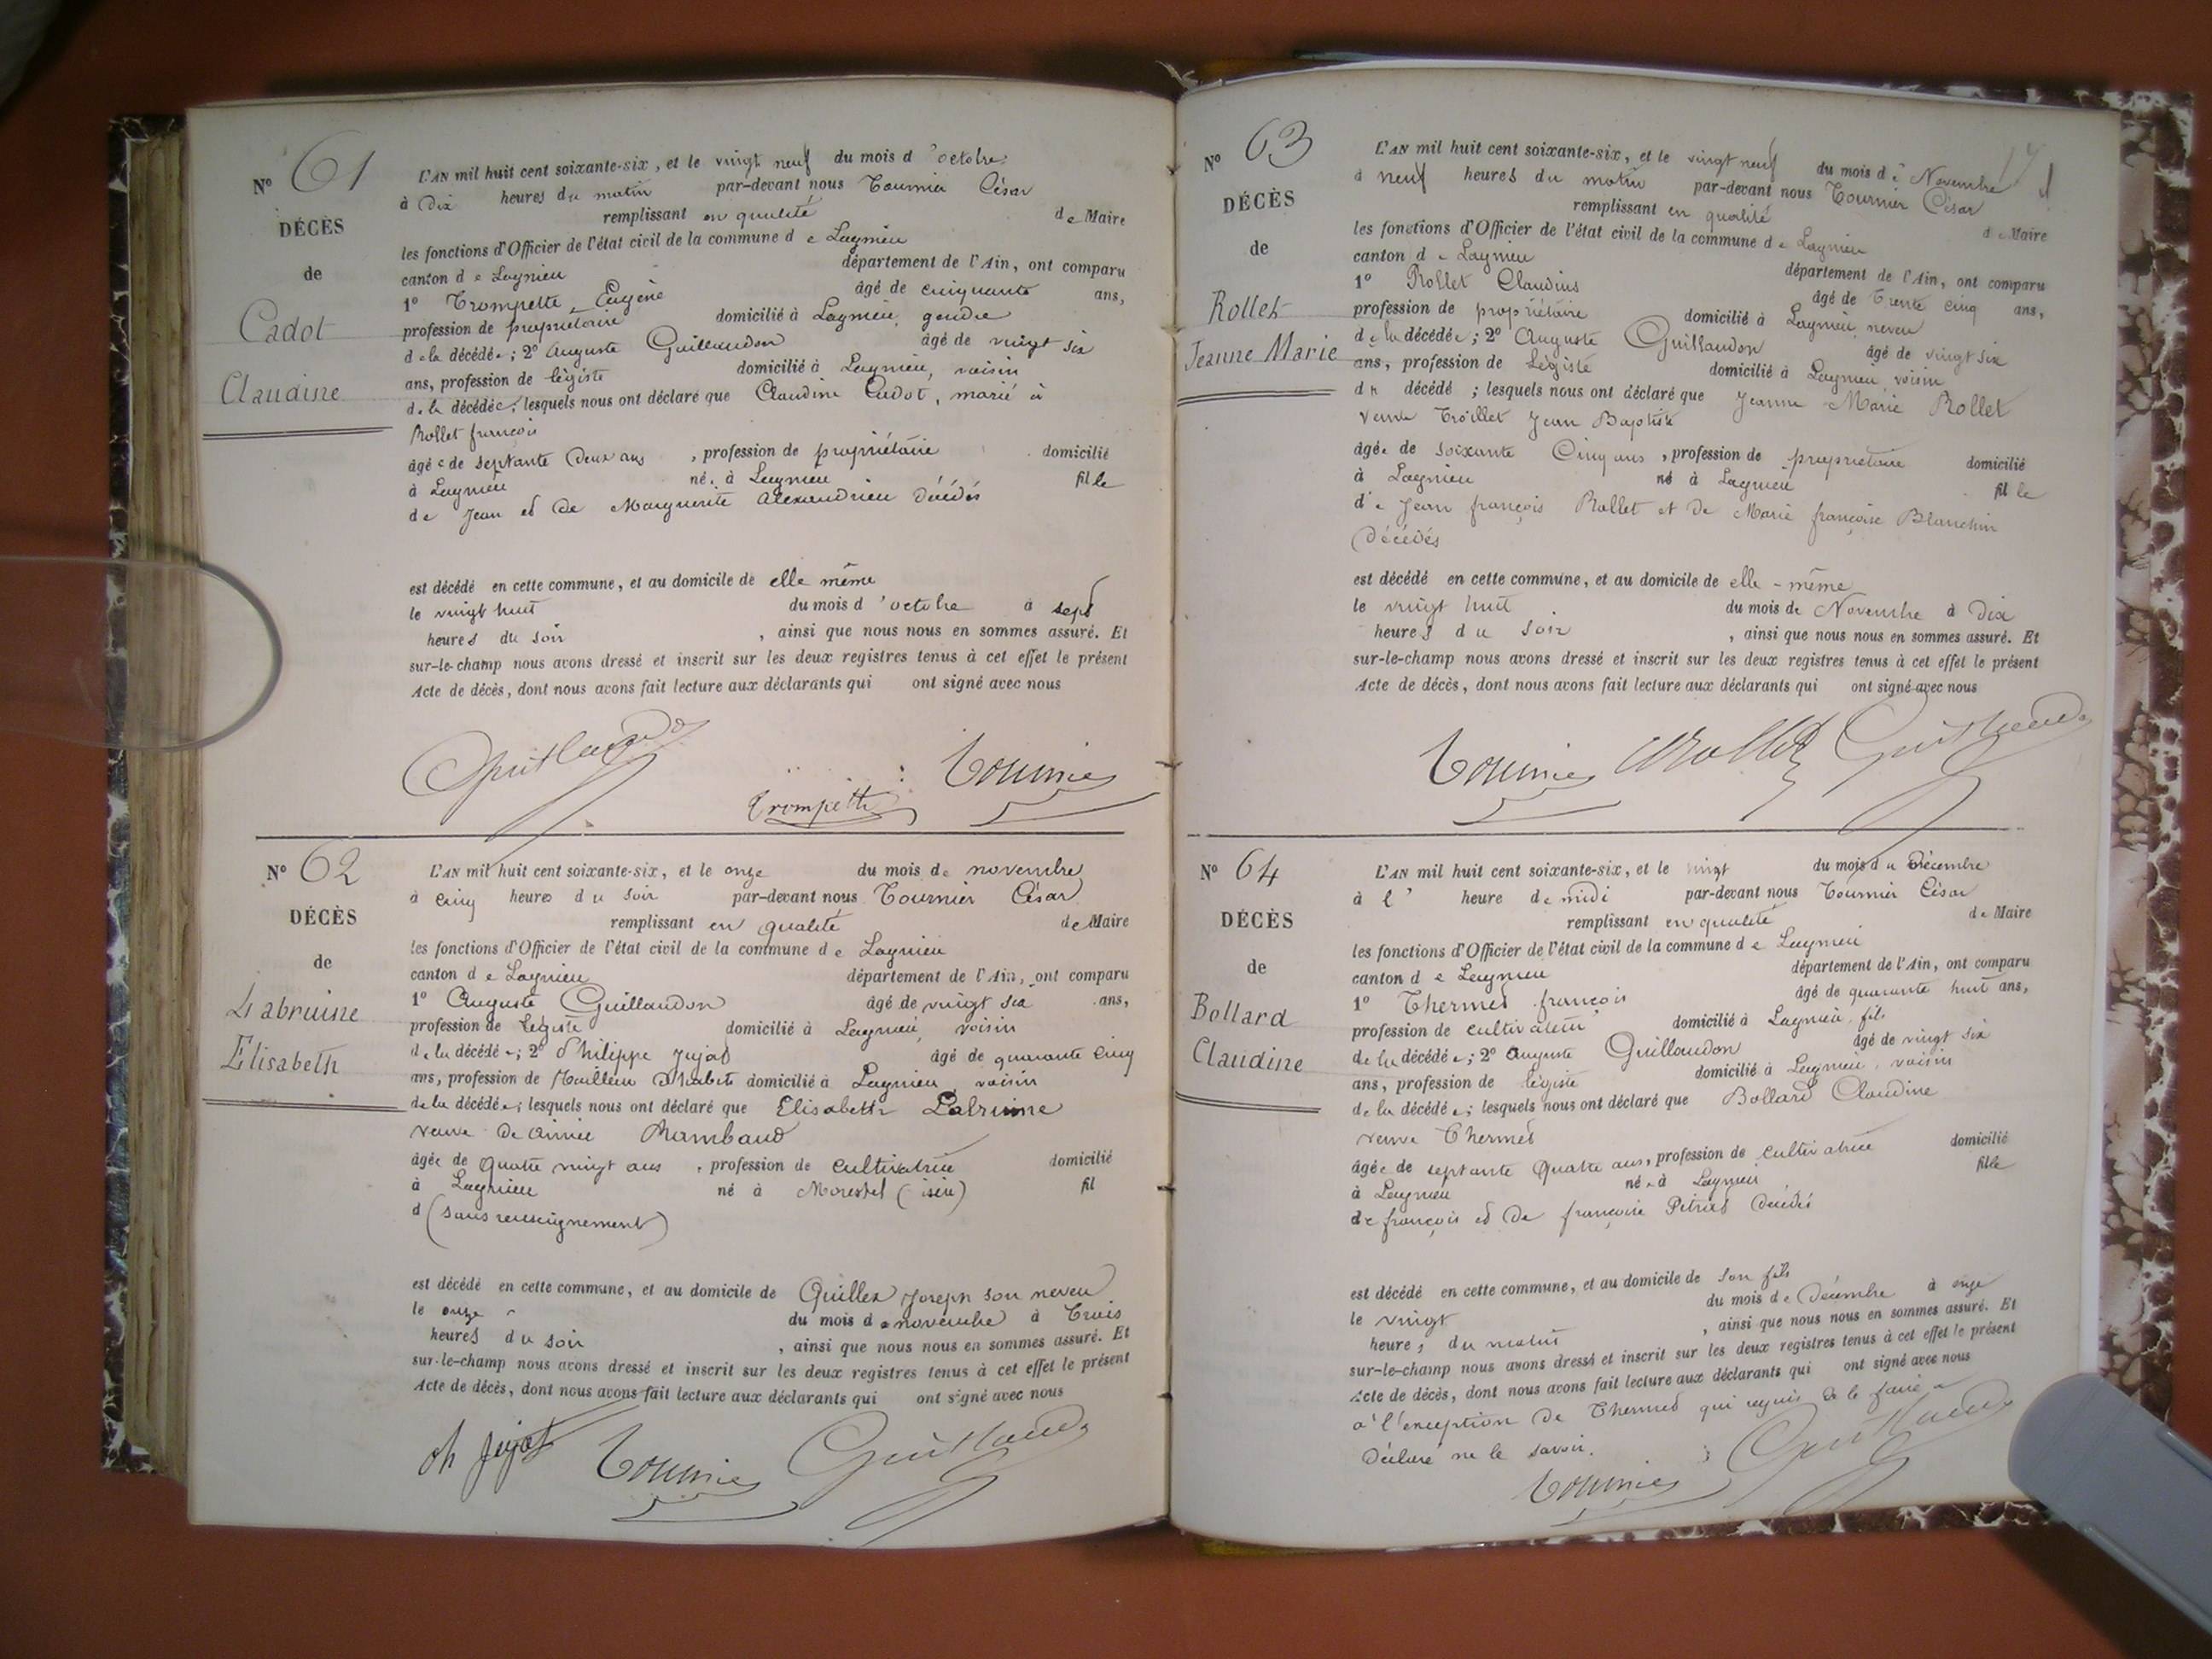 N° 61
DÉCÈS
de
Cadot
Claudine
L'AN mil huit cent soixante-six, et le vingt neuf du mois d'octobre
à Dix heures du matin par-devant nous Tournier César
remplissant en qualité de Maire
les fonctions d'Officier de l'état civil de la commune de Lagnieu
canton de Lagnieu département de l'Ain, ont comparu
1° Trompette Eugène âgé de cinquante ans,
profession de propriétaire domicilié à Lagnieu, gendre
de la décédée; 2° Auguste Guillaudon âgé de vingt six
ans, profession de légiste domicilié à Lagnieu, voisin
de la décédée; lesquels nous ont déclaré que Claudine Cadot, marié à
Rollet françois
âgée de septante Deux ans, profession de propriétaire domicilié
à Lagnieu née à Lagnieu fille
de Jean et de Marguerite Alexandrieu Décédés
est décédé en cette commune, et au domicile de elle même
le vingt huit du mois d'octobre à sept
heures du soir, ainsi que nous nous en sommes assuré. Et
sur-le-champ nous avons dressé et inscrit sur les deux registres tenus à cet effet le présent
Acte de décès, dont nous avons fait lecture aux déclarants qui ont signé avec nous
Guillaudon Trompette Tournier
N° 62
DÉCÈS
de
Labruine
Elisabeth
L'AN mil huit cent soixante-six, et le onze du mois de novembre
à cinq heures du soir par-devant nous Tournier César
remplissant en qualité de Maire
les fonctions d'Officier de l'état civil de la commune de Lagnieu
canton de Lagnieu département de l'Ain, ont comparu
1° Auguste Guillaudon âgé de vingt six ans,
profession de légiste domicilié à Lagnieu, voisin
de la décédée; 2° Philippe Jujat âgé de quarante cinq
ans, profession de Tailleur D'habits domicilié à Lagnieu, voisin
de la décédée; lesquels nous ont déclaré que Elisabeth Labruine
veuve de aimée Rambaud
âgée de quatre vingt ans, profession de cultivatrice domicilié
à Lagnieu né à Morestel (isère) fil
d (sans renseignement)
est décédé en cette commune, et au domicile de Quillez Joseph son neveu
le onze du mois de novembre à Trois
heures du soir, ainsi que nous nous en sommes assuré. Et
sur-le-champ nous avons dressé et inscrit sur les deux registres tenus à cet effet le présent
Acte de décès, dont nous avons fait lecture aux déclarants qui ont signé avec nous
Ph Jujat Tournier Guillaudon
N° 63
DÉCÈS
de
Rollet
Jeanne Marie
L'AN mil huit cent soixante-six, et le vingt neuf du mois de Novembre
à neuf heures du matin par-devant nous Tournier César
remplissant en qualité de Maire
les fonctions d'Officier de l'état civil de la commune de Lagnieu
canton de Lagnieu département de l'Ain, ont comparu
1° Rollet Claudius âgé de Trente cinq ans,
profession de propriétaire domicilié à Lagnieu neveu
de la décédée; 2° Auguste Guillaudon âgé de vingt six
ans, profession de Légiste domicilié à Lagnieu voisin
de décédé; lesquels nous ont déclaré que Jeanne Marie Rollet
veuve Troillet Jean Baptiste
âgée de soixante Cinq ans, profession de propriétaire domicilié
à Lagnieu né à Lagnieu fille
de Jean françois Rollet et de Marie françoise Blanchin
Décédés
est décédé en cette commune, et au domicile de elle-même
le vingt huit du mois de Novembre à Dix
heures du soir, ainsi que nous nous en sommes assuré. Et
sur-le-champ nous avons dressé et inscrit sur les deux registres tenus à cet effet le présent
Acte de décès, dont nous avons fait lecture aux déclarants qui ont signé avec nous
Tournier Rollet Guillaudon
N° 64
DÉCÈS
de
Bollard
Claudine
L'AN mil huit cent soixante-six, et le vingt du mois du Décembre
à l' heure de midi par-devant nous Tournier César
remplissant en qualité de Maire
les fonctions d'Officier de l'état civil de la commune de Lagnieu
canton de Lagnieu département de l'Ain, ont comparu
1° Thermed françois âgé de quarante huit ans,
profession de cultivateur domicilié à Lagnieu, fils
de la décédée; 2° Auguste Guillaudon âgé de vingt six
ans, profession de légiste domicilié à Lagnieu, voisin
de la décédée; lesquels nous ont déclaré que Bollard Claudine
veuve Thermed
âgée de septante Quatre ans, profession de cultivatrice domicilié
à Lagnieu née à Lagnieu fille
de françois et de françoise Pétried Décédés
est décédé en cette commune, et au domicile de son fils
le vingt du mois de Décembre à onze
heures du matin, ainsi que nous nous en sommes assuré. Et
sur-le-champ nous avons dressé et inscrit sur les deux registres tenus à cet effet le présent
Acte de décès, dont nous avons fait lecture aux déclarants qui ont signé avec nous
à l'exception de Thermed qui requis de le faire a
Déclaré ne le savoir.
Tournier Guillaudon